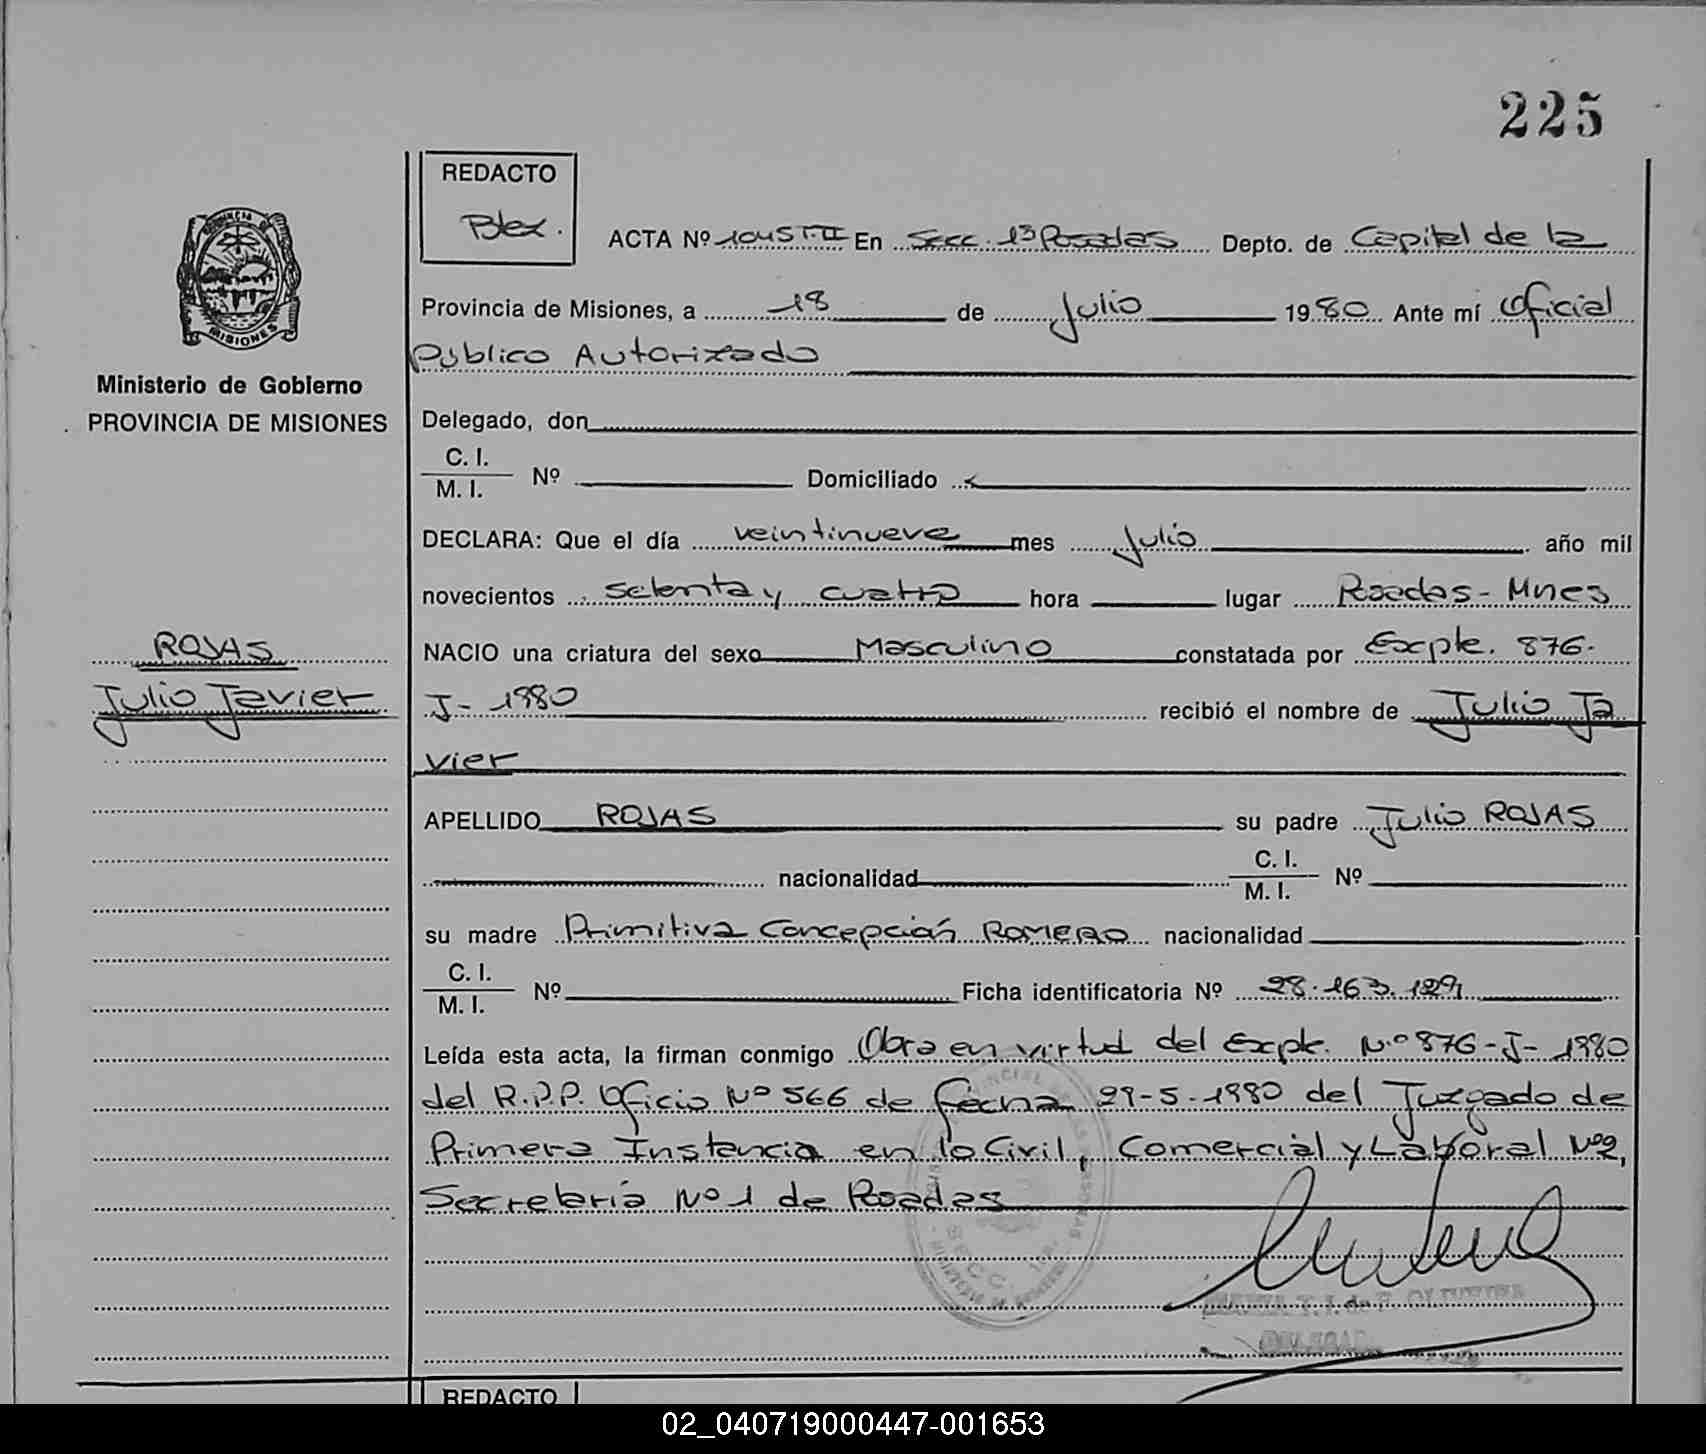 225
REDACTO
Blex.
ACTA Nº 1045 T.II En Secc. 1ª Posadas Depto. de Capital de la
Provincia de Misiones, a 18 de Julio 1980 Ante mí Oficial
Público Autorizado
Ministerio de Gobierno
PROVINCIA DE MISIONES
Delegado, don
C. I.
M. I. Nº Domiciliado
DECLARA: Que el día veintinueve mes Julio año mil
novecientos setenta y cuatro hora lugar Posadas - Mnes
ROJAS
Julio Javier
NACIO una criatura del sexo Masculino constatada por Expte. 876-
J- 1980 recibió el nombre de Julio Ja
vier
APELLIDO ROJAS su padre Julio ROJAS
nacionalidad C. I.
M. I. Nº
su madre Primitiva Concepción ROMERO nacionalidad
C. I.
M. I. Nº Ficha identificatoria Nº 28.163.129
Leída esta acta, la firman conmigo Obra en virtud del Expte. N.º 876-J- 1980
del R.P.P. Oficio Nº 566 de fecha 29-5-1980 del Juzgado de
Primera Instancia en lo Civil, Comercial y Laboral Nº2,
Secretaría Nº 1 de Posadas
REDACTO
02_040719000447-001653